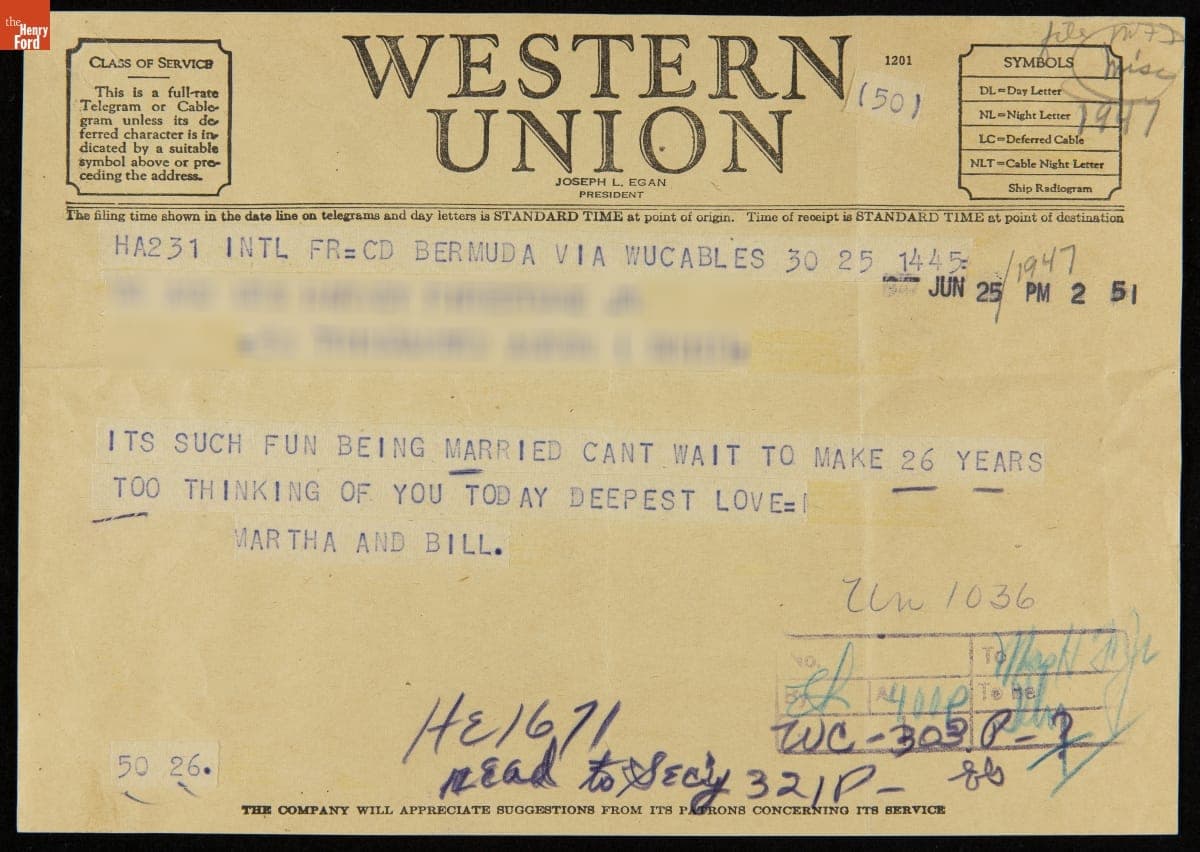 the
Henry
Ford
CLASS OF SERVICE
This is a full-rate
Telegram or Cable-
gram unless its de-
ferred character is in-
dicated by a suitable
symbol above or pre-
ceding the address.
WESTERN
UNION
1201
(50)
JOSEPH L. EGAN
PRESIDENT
file
misc
1947
SYMBOLS
DL=Day Letter
NL=Night Letter
LC=Deferred Cable
NLT=Cable Night Letter
Ship Radiogram
The filing time shown in the date line on telegrams and day letters is STANDARD TIME at point of origin. Time of receipt is STANDARD TIME at point of destination
HA231 INTL FR=CD BERMUDA VIA WUCABLES 30 25 1445=
JUN 25 /1947 PM 2 51
ITS SUCH FUN BEING MARRIED CANT WAIT TO MAKE 26 YEARS
TOO THINKING OF YOU TODAY DEEPEST LOVE=
MARTHA AND BILL.
1036
No. To
By A 400P To be
WC-303 P-?
HE1671
read to Sec'y 321P-
50 26.
THE COMPANY WILL APPRECIATE SUGGESTIONS FROM ITS PATRONS CONCERNING ITS SERVICE